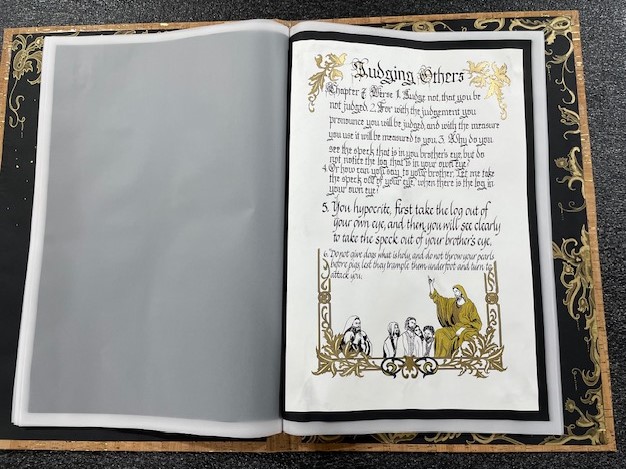 Judging Others
Chapter 7 Verse 1. Judge not, that you be
not judged. 2. For with the judgement you
pronounce you will be judged, and with the measure
you use it will be measured to you. 3. Why do you
see the speck that is in you brother's eye, but do
not notice the log that is in your own eye?
4. Or how can you say to your brother, Let me take
the speck out of your eye, when there is the log in
your own eye?
5. You hypocrite, first take the log out of
your own eye, and then you will see clearly
to take the speck out of your brother's eye.
6. Do not give dogs what is holy, and do not throw your pearls
before pigs, lest they trample them underfoot and turn to
attack you.